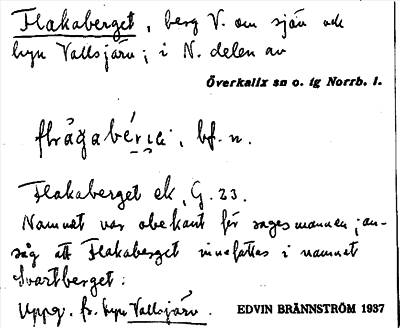 Flakaberget, berg V. om sjön och
byn Vallsjärv; i N. delen av
Överkalix sn o. tg Norrb. l.
bf. n.
Flakaberget ek, G. 23.
Namnet var obekant för sagesmannen; an-
såg att Flakaberget innefattas i namnet
Svartberget.
Uppg. fr. byn Vallsjärv.
EDVIN BRÄNNSTRÖM 1937